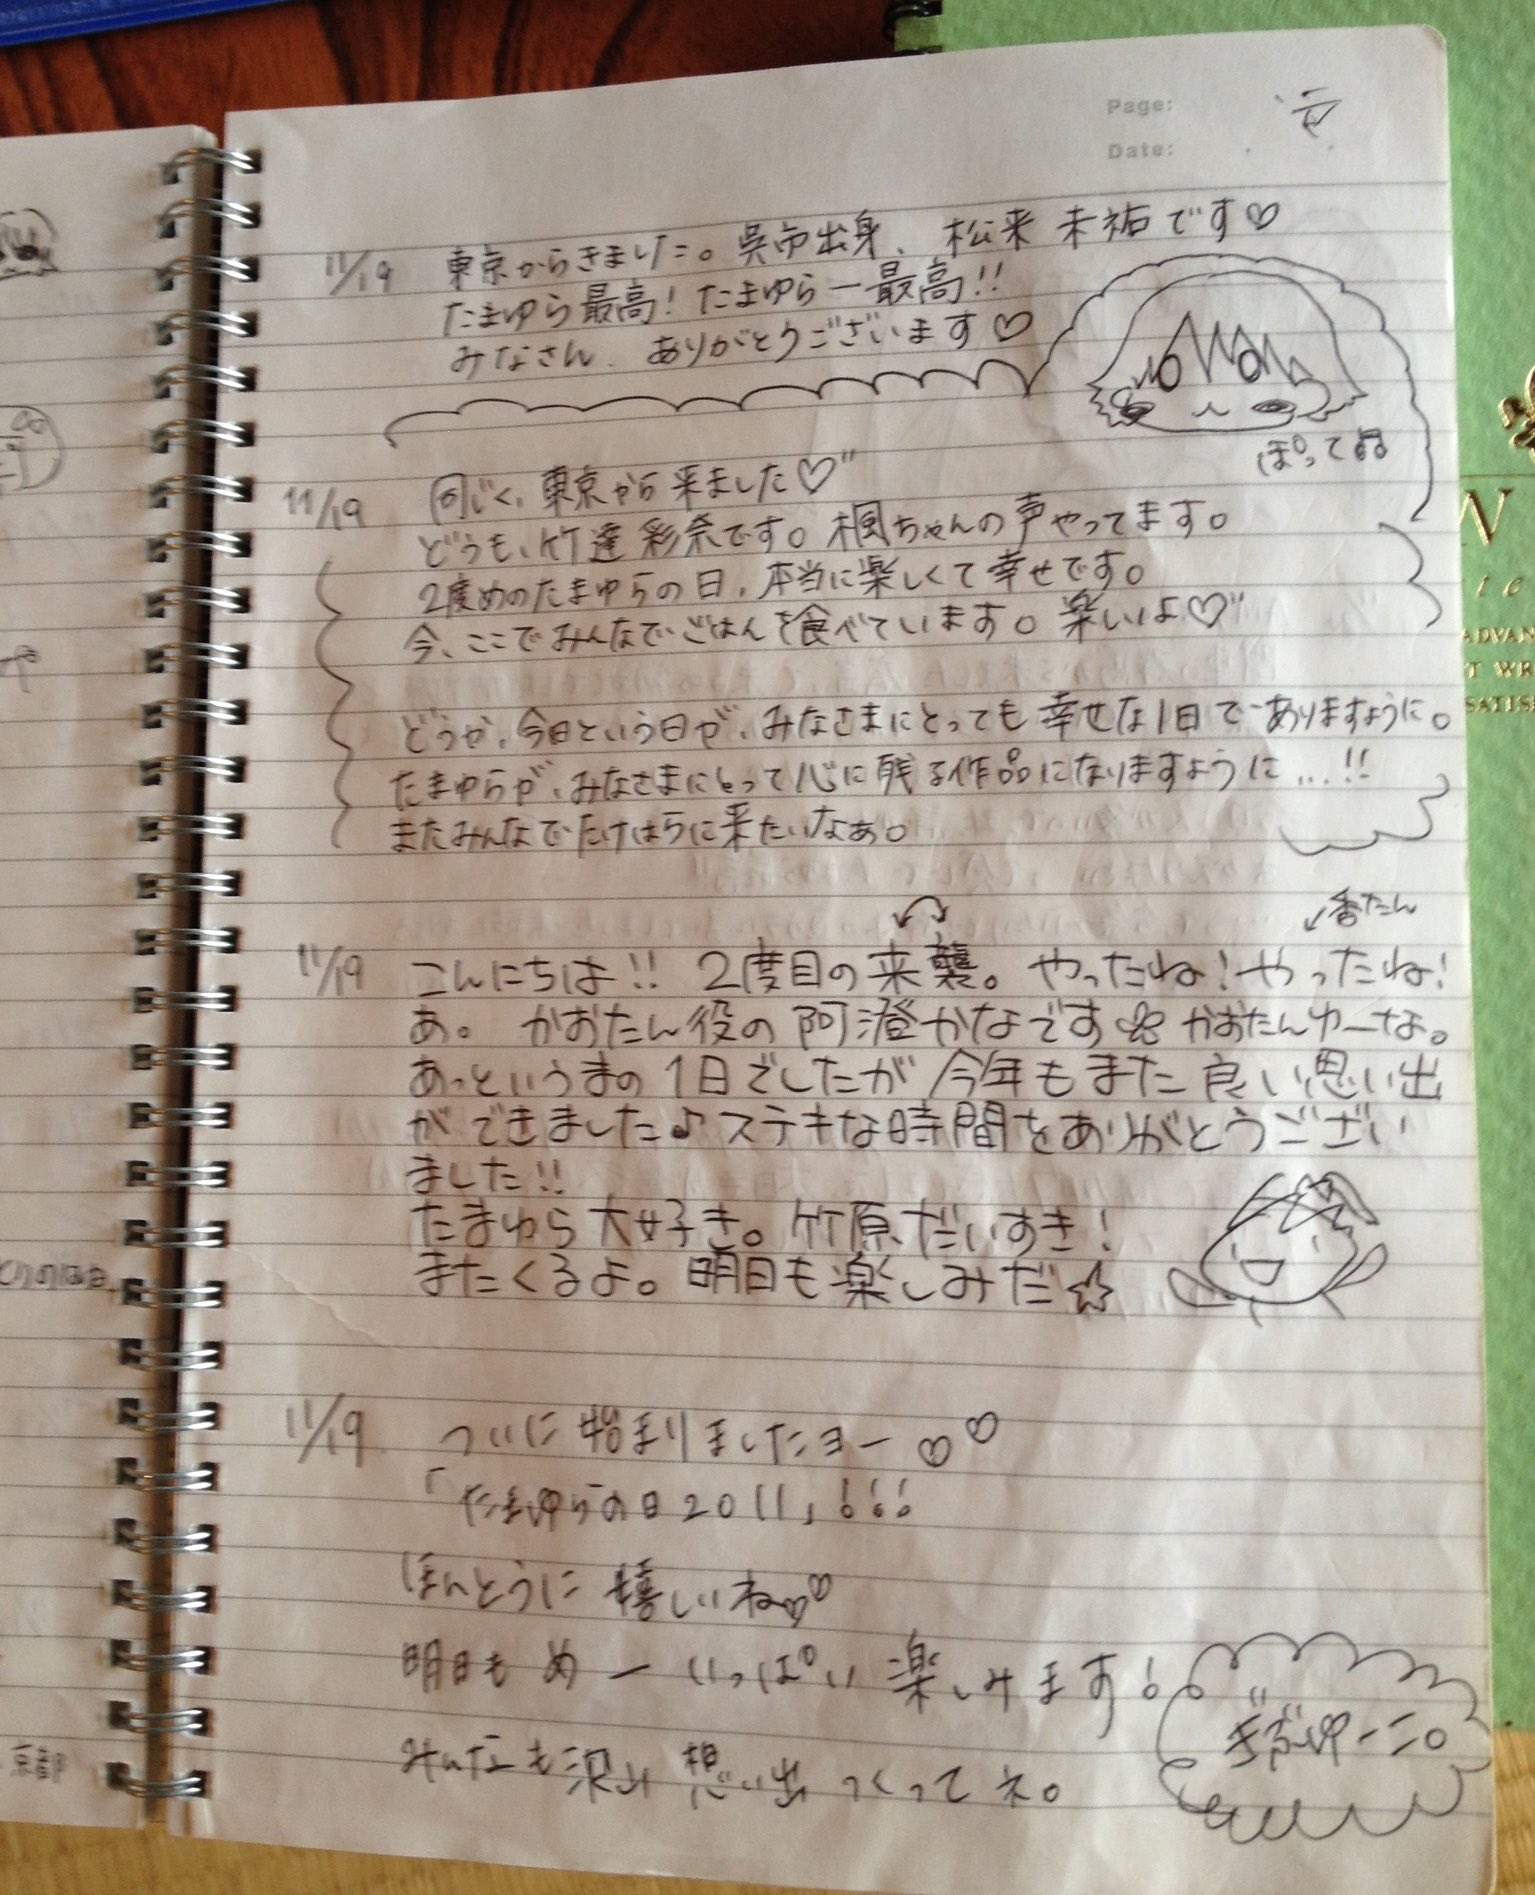 Page:
Date:
11/19 東京からきました。呉市出身、松来 未祐です♡
たまゆら最高！たまゆらー最高!!
みなさん、ありがとうございます♡
ぽって
11/19 同じく、東京から来ました♡
どうも、竹達 彩奈です。楓ちゃんの声やってます。
2度めのたまゆらの日、本当に楽しくて幸せです。
今、ここでみんなでごはんを食べています。楽しいよ♡
どうか、今日という日が、みなさまにとっても幸せな1日でありますように。
たまゆらが、みなさまにとって心に残る作品になりますように…!!
またみんなでたけはらに来たいなぁ。
↙香たん
11/19 こんにちは!! 2度目の来襲。やったね！やったね！
あ。かおたん役の阿澄かなです かおたんゆーな。
あっというまの1日でしたが今年もまた良い思い出
ができました♪ステキな時間をありがとうござい
ました!!
たまゆら大好き。竹原だいすき！
またくるよ。明日も楽しみだ☆
11/19 ついに始まりましたヨー♡♡
「たまゆらの日2011」!!!
ほんとうに嬉しいね♡♡
明日も めーいっぱい楽しみます！
みんなも沢山 想い出 つくってネ。
ぎぶゆーこ。
京都
N
ADVAN
T WR
SATIS